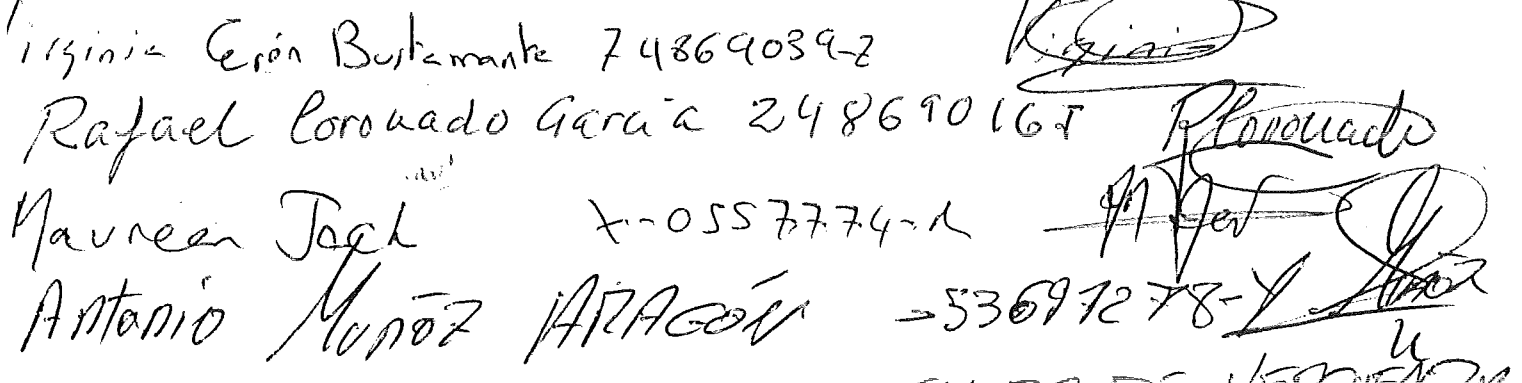 Virginia Cerón Bustamante 74869039-Z
Rafael Coronado García 24869016T RCoronado
Maureen X-0557774-R
Antonio Muñoz ARAGÓN -53697278-Y
DE